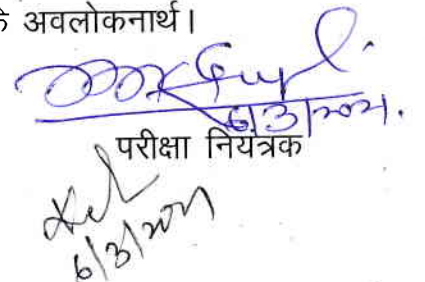 के अवलोकनार्थ।
6/3/2021.
परीक्षा नियंत्रक
6/3/2021